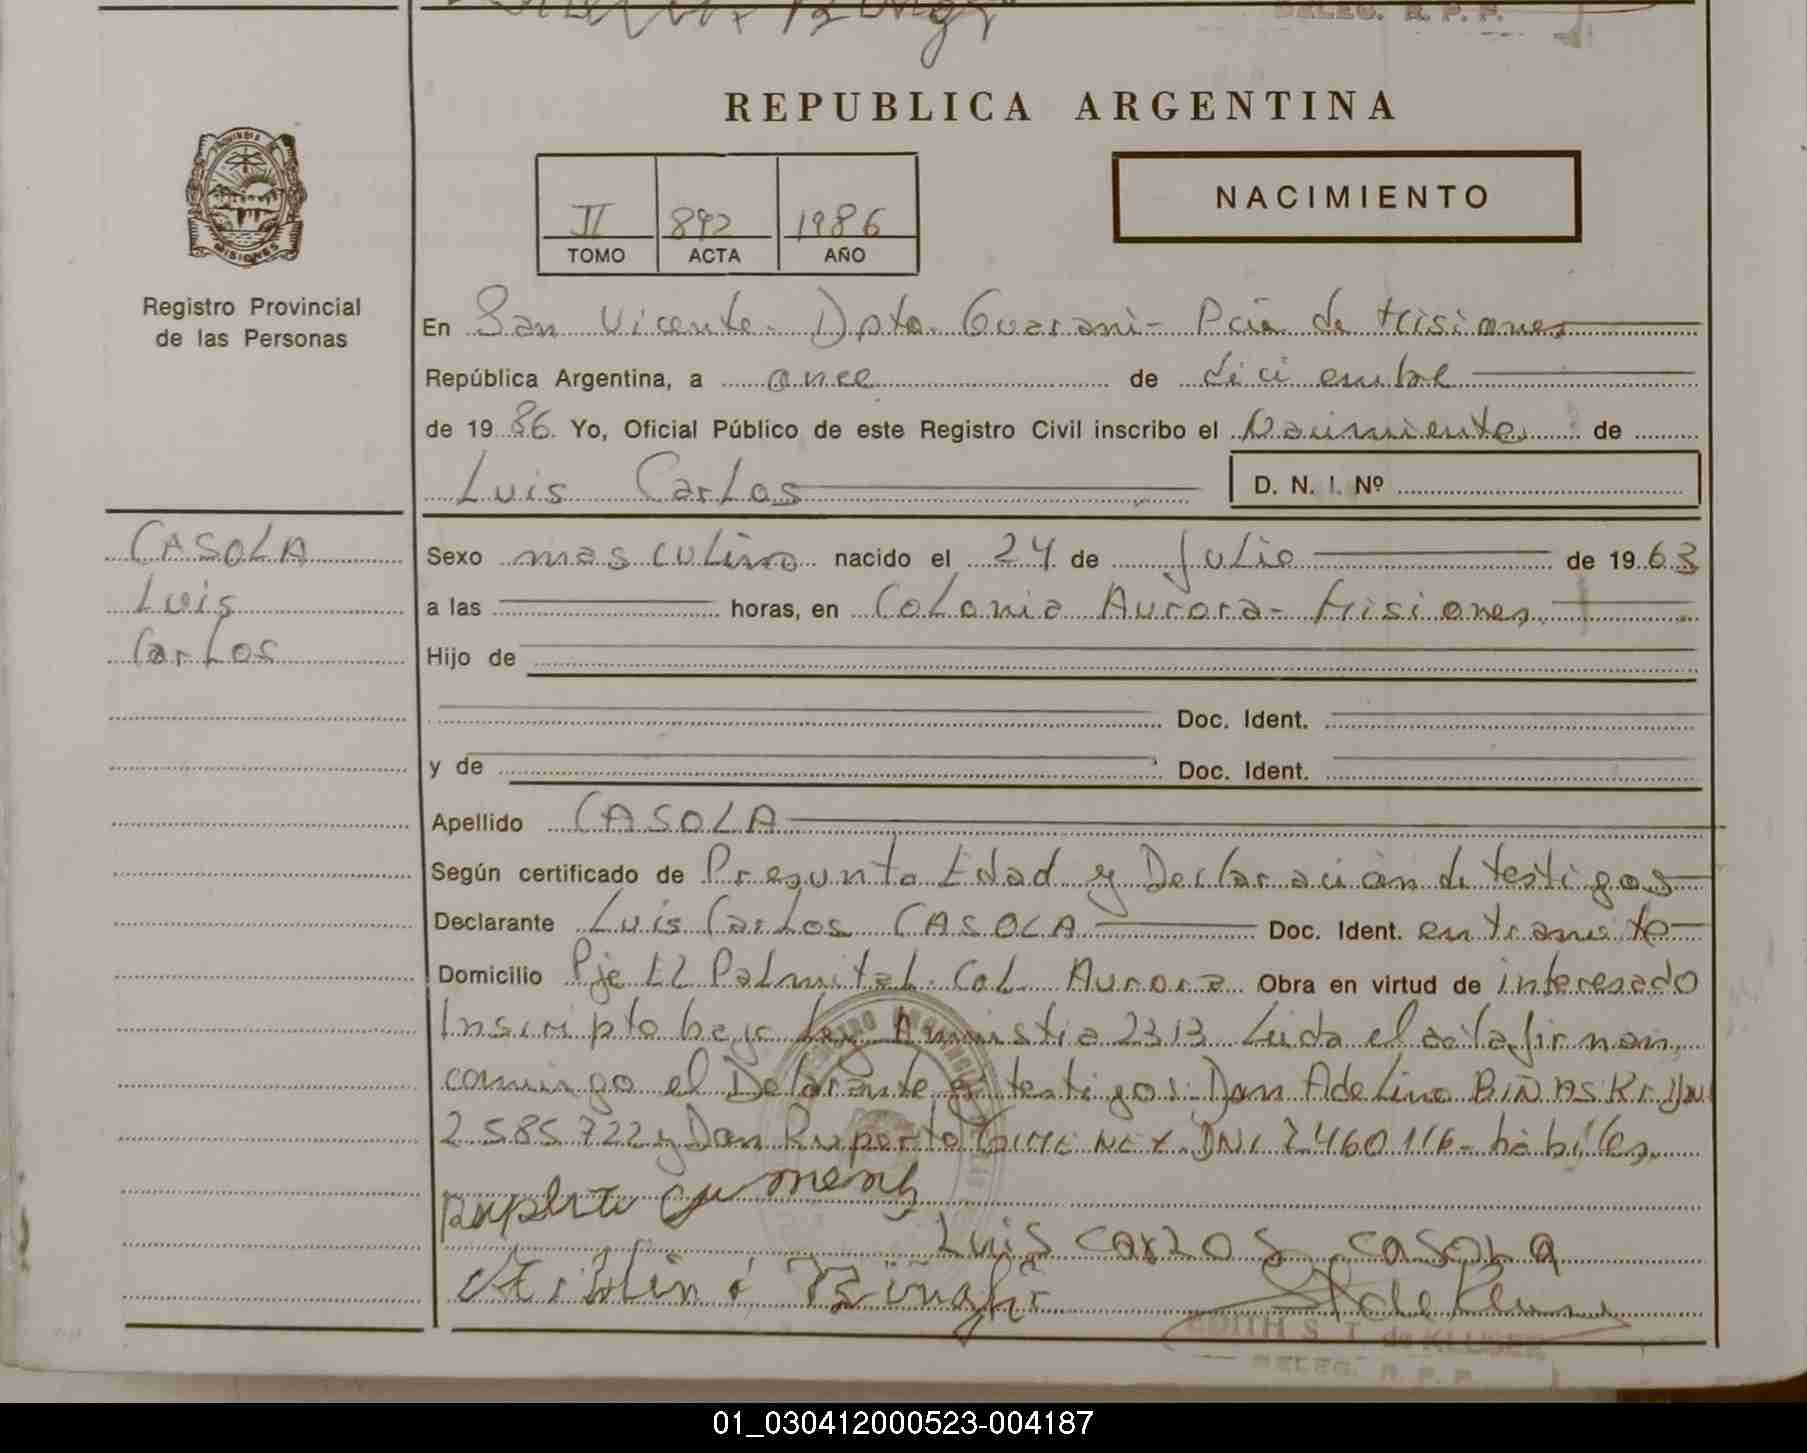 DELEG. R. P. P.
REPUBLICA ARGENTINA
PROVINCIA DE MISIONES
NACIMIENTO
II 892 1986
TOMO ACTA AÑO
Registro Provincial
de las Personas
En San Vicente. Dpto. Guarani - Pcia de Misiones
República Argentina, a once de diciembre
de 1986. Yo, Oficial Público de este Registro Civil inscribo el Nacimiento de
Luis Carlos
D. N. I. Nº
CASOLA
Luis
Carlos
Sexo masculino nacido el 24 de Julio de 1963
a las horas, en Colonia Aurora - Misiones
Hijo de
Doc. Ident.
y de Doc. Ident.
Apellido CASOLA
Según certificado de Presunta Edad y Declaración de testigos
Declarante Luis Carlos CASOLA Doc. Ident. en tramite
Domicilio Pje El Palmital. Col. Aurora Obra en virtud de interesado
Inscripto bajo Ley Amnistia 2313 Leida el acta firman
conmigo el Declarante y testigos: Don Adelino BIÑASKI DNI
2585722 y Don Ruperto GIMENEZ. DNI 2460116 - hábiles
Luis Carlos Casola
EDITH S. T. de KLUSER
DELEG. R. P. P.
01_030412000523-004187